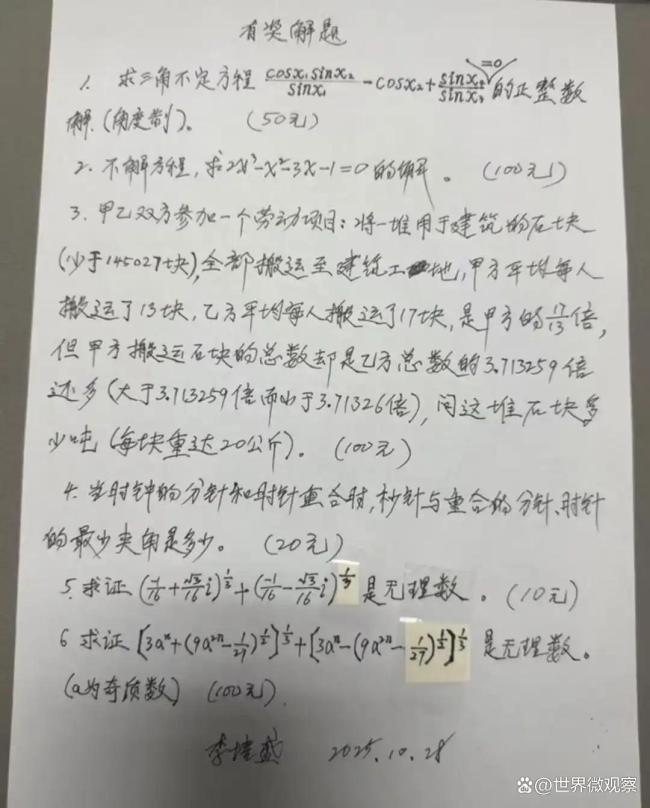 有奖解题
1. 求三角不定方程 \frac{cosx₁sinx₂}{sinx₁} - cosx₂ + \frac{sinx₂}{sinx₃} =0 的正整数
解.(角度制)。 (50元)
2. 不解方程,求2x³-x²-3x-1=0的解。 (100元)
3. 甲乙双方参加一个劳动项目:将一堆用于建筑的石块
(少于145027块),全部搬运至建筑工地,甲方平均每人
搬运了13块,乙方平均每人搬运了17块,是甲方的\frac{17}{13}倍,
但甲方搬运石块的总数却是乙方总数的3.713259倍
还多(大于3.713259倍而小于3.71326倍),问这堆石块多
少吨(每块重达20公斤)。 (100元)
4. 当时钟的分针和时针重合时,秒针与重合的分针、时针
的最少夹角是多少。 (20元)
5. 求证 (\frac{-1}{16}+\frac{√3}{16}i)^{\frac{1}{3}}+(\frac{-1}{16}-\frac{√3}{16}i)^{\frac{1}{3}} 是无理数。 (10元)
6 求证 [3aⁿ+(9a²ⁿ-\frac{1}{27})^{\frac{1}{2}}]^{\frac{1}{3}}+[3aⁿ-(9a²ⁿ-\frac{1}{27})^{\frac{1}{2}}]^{\frac{1}{3}} 是无理数。
(a为奇质数) (100元)
李 盛 2025.10.28
@世界微观察